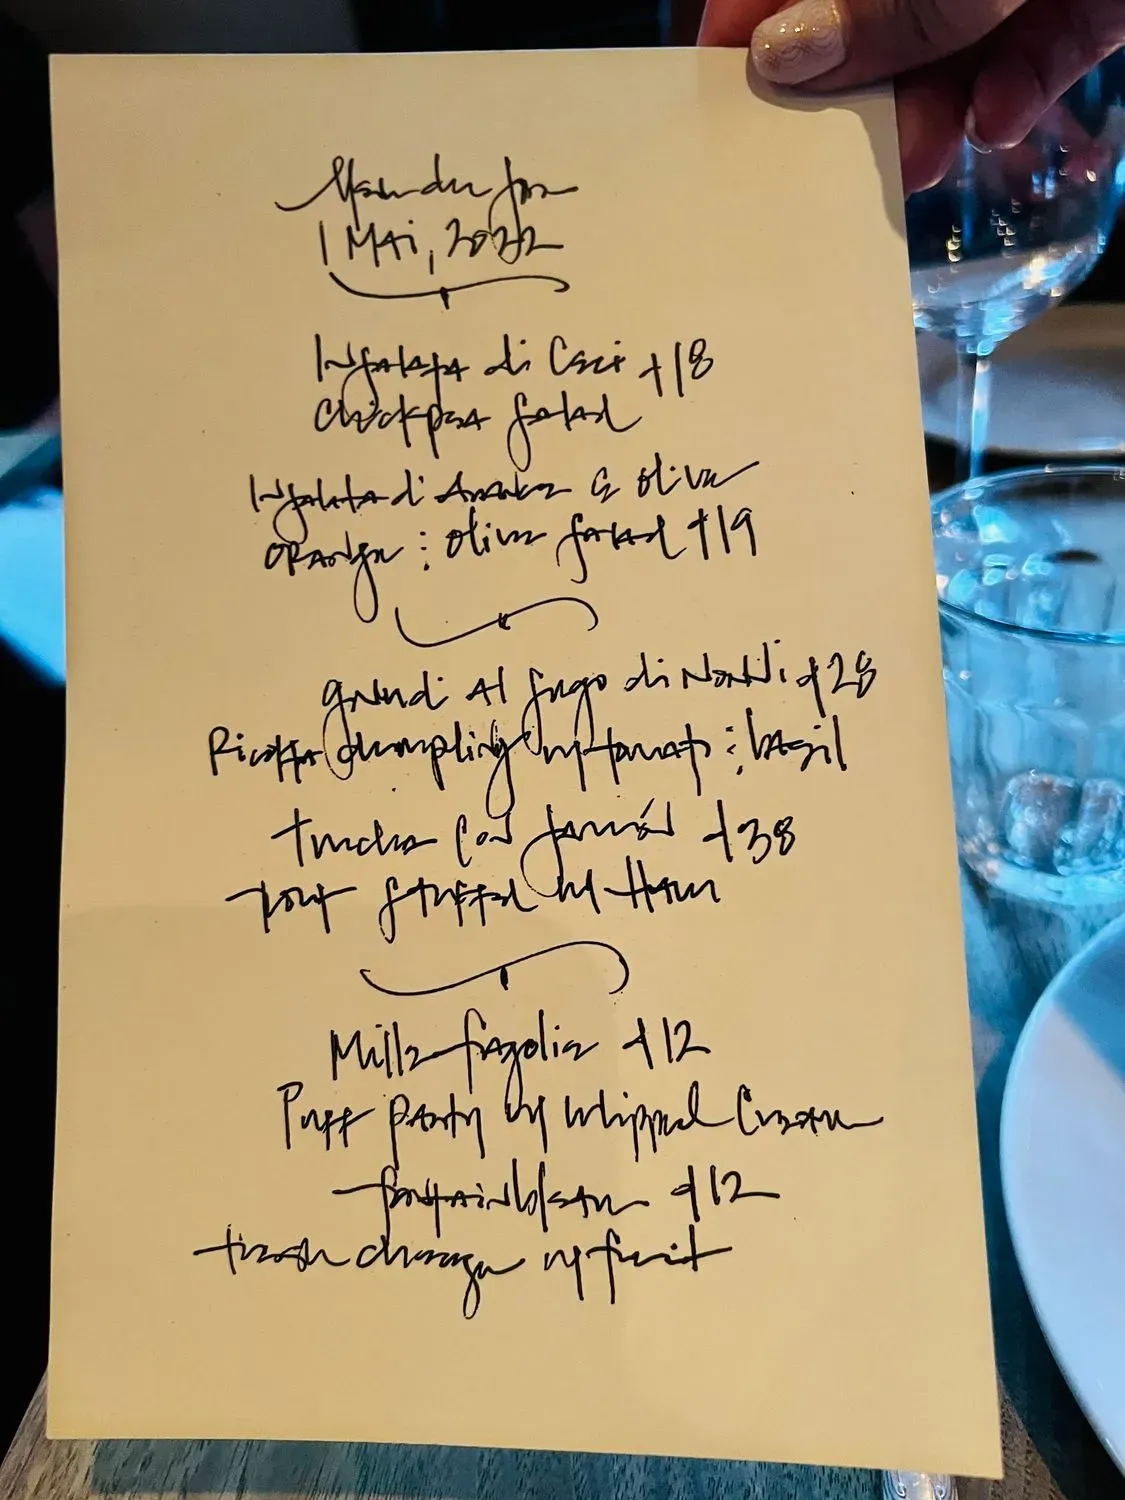 1 Mai, 2022
Insalata di Ceci +18
Chickpea Salad
Insalata di Arance e olive
Orange & olive salad +19
gnudi al sugo di +28
Ricotta dumplings w/ tomato & basil
trucha con jamón +38
trout stuffed w/ Ham
Mille-fogolie +12
Puff pastry w/ whipped Cream
fontainbleau +12
fresh cheese w/ fruit